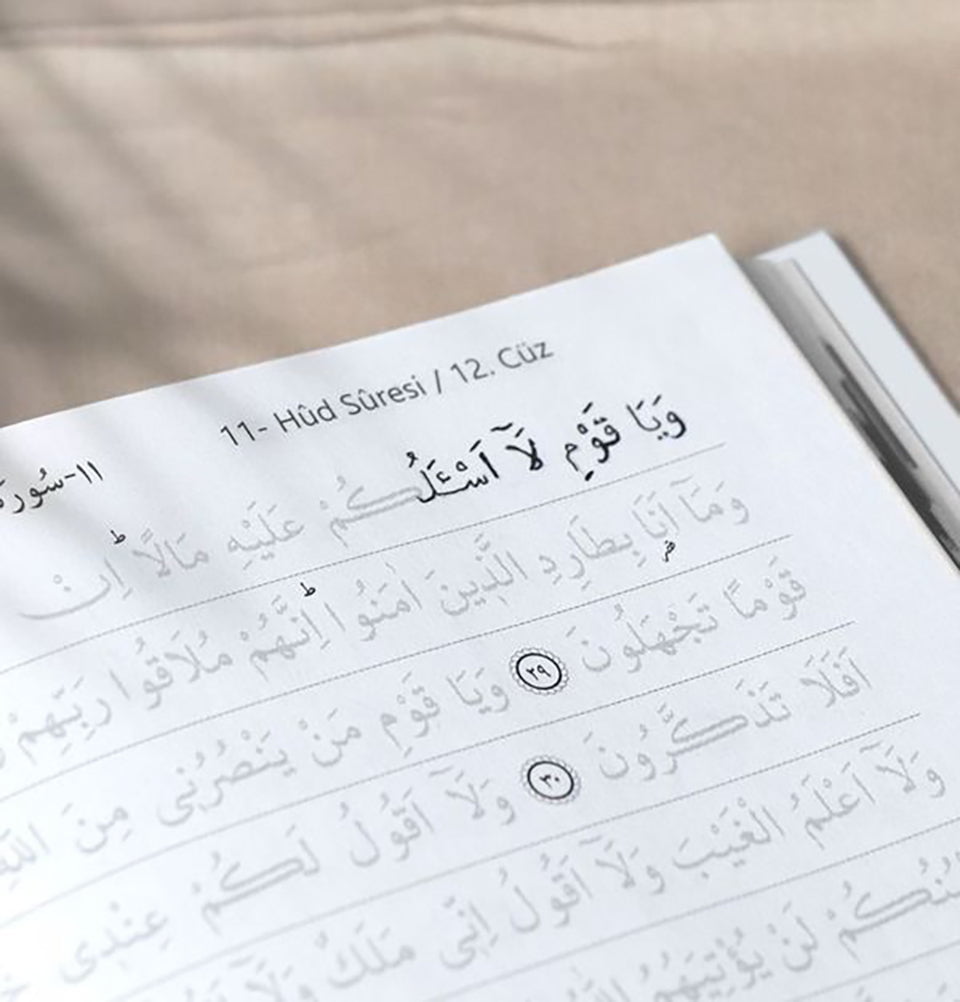 11- Hûd Sûresi / 12. Cüz
١١-سُورَة
وَيَا قَوْمِ لَٓا اَسْـَٔلُكُمْ عَلَيْهِ مَالًاۜ اِنْ
وَمَٓا اَنَا۬ بِطَارِدِ الَّذ۪ينَ اٰمَنُواۜ اِنَّهُمْ مُلَاقُوا رَبِّهِمْ
قَوْمًا تَجْهَلُونَ ﴿٢٩﴾ وَيَا قَوْمِ مَنْ يَنْصُرُن۪ى مِنَ اللّٰهِ
اَفَلَا تَذَكَّرُونَ ﴿٣٠﴾ وَلَٓا اَقُولُ لَكُمْ عِنْد۪ى
وَلَٓا اَعْلَمُ الْغَيْبَ وَلَٓا اَقُولُ اِنّ۪ى مَلَكٌ وَلَٓا
لَنْ يُؤْتِيَهُمُ اللّٰهُ